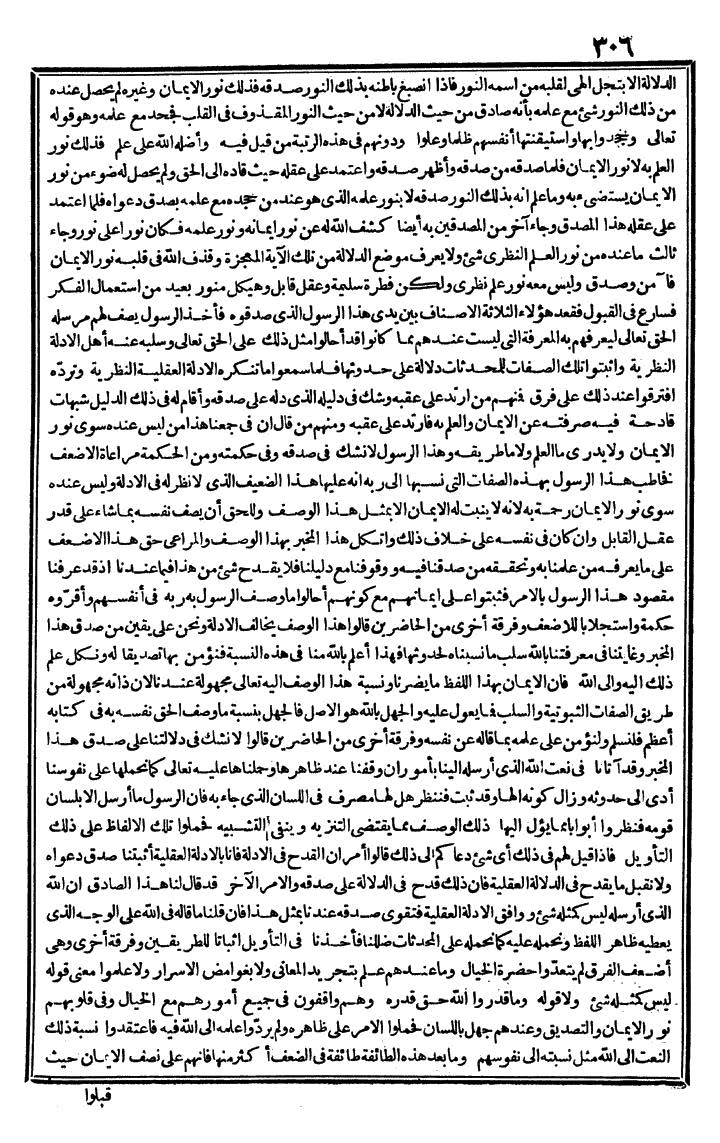 ٣٠٦
الدلالة الا بتجل الهى لقلبه من اسمه النور فاذا انصبغ باطنه بذلك النور صدقه فذلك نور الايمان وغيره لم يحصل عنده
من ذلك النور شئ مع علمه بأنه صادق من حيث الدلالة لا من حيث النور المقذوف فى القلب فجحد مع علمه وهو قوله
تعالى وجحدوا بها واستيقنتها أنفسهم ظلما وعلوا ودونهم فى هذه الرتبة من قيل فيه وأضله الله على علم فذلك نور
العلم به لا نور الايمان فلما صدقه من صدقه وأظهر صدقه واعتمد على عقله حيث قاده الى الحق ولم يحصل له ضوء من نور
الايمان يستضىء به وما علم انه بذلك النور صدقه لا بنور علمه الذى هو عند من جحده مع علمه بصدق دعواه فلما اعتمد
على عقله هذا المصدق وجاء آخر من المصدقين به أيضا كشف الله له عن نور ايمانه ونور علمه فكان نورا على نور وجاء
ثالث ما عنده من نور العلم النظرى شئ ولا يعرف موضع الدلالة من تلك الآية المعجزة وقذف الله فى قلبه نور الايمان
فآمن وصدق وليس معه نور علم نظرى ولكن فطرة سليمة وعقل قابل وهيكل منور بعيد من استعمال الفكر
فسارع فى القبول فقعد هؤلاء الثلاثة الاصناف بين يدى هذا الرسول الذى صدقوه فأخذ الرسول يصف لهم مرسله
الحق تعالى ليعرفهم به المعرفة التى ليست عندهم مما كانوا قد أحالوا مثل ذلك على الحق تعالى وسلبه عنه أهل الادلة
النظرية واثبتوا تلك الصفات للمحدثات دلالة على حدوثها فلما سمعوا ما تنكره الادلة العقلية النظرية وتردّه
افترقوا عند ذلك على فرق فمنهم من ارتد على عقبه وشك فى دليله الذى دله على صدقه وأقام له فى ذلك الدليل شبهات
قادحة فيه صرفته عن الايمان والعلم به فارتد على عقبه ومنهم من قال ان فى جمعنا هذا من ليس عنده سوى نور
الايمان ولا يدرى ما العلم ولا ما طريقه وهذا الرسول لا نشك فى صدقه وفى حكمته ومن الحكمة مراعاة الاضعف
فخاطب هذا الرسول بهذه الصفات التى نسبها الى ربه انه عليها هذا الضعيف الذى لا نظر له فى الادلة وليس عنده
سوى نور الايمان رحمة به لانه لا يثبت له الايمان الا بمثل هذا الوصف وللحق أن يصف نفسه بما شاء على قدر
عقل القابل وان كان فى نفسه على خلاف ذلك واتكل هذا المخبر بهذا الوصف والمراعى حق هذا الاضعف
على ما يعرفه من علمنا به وتحققه من صدقنا فيه ووقوفنا مع دليلنا فلا يقدح شئ من هذا فيما عندنا اذ قد عرفنا
مقصود هذا الرسول بالامر فثبتوا على ايمانهم مع كونهم أحالوا ما وصف الرسول به ربه فى أنفسهم وأقرّوه
حكمة واستجلابا للاضعف وفرقة أخرى من الحاضرين قالوا هذا الوصف يخالف الادلة ونحن على يقين من صدق هذا
المخبر وغايتنا فى معرفتنا بالله سلب ما نسبناه لحدوثها فهذا أعلم بالله منا فى هذه النسبة فنؤمن بها تصديقا له ونكل علم
ذلك اليه والى الله فان الايمان بهذا اللفظ ما يضرنا ونسبة هذا الوصف اليه تعالى مجهولة عندنا لان ذاته مجهولة من
طريق الصفات الثبوتية والسلب فما يعول عليه والجهل بالله هو الاصل فالجهل بنسبة ما وصف الحق نفسه به فى كتابه
أعظم فلنسلم ولنؤمن على علمه بما قاله عن نفسه وفرقة أخرى من الحاضرين قالوا لا نشك فى دلالتنا على صدق هذا
المخبر وقد أتانا فى نعت الله الذى أرسله الينا بأمور ان وقفنا عند ظاهرها وحملناها عليه تعالى كما نحملها على نفوسنا
أدى الى حدوثه وزال كونه الها وقد ثبت فننظر هل لها مصرف فى اللسان الذى جاء به فان الرسول ما أرسل الا بلسان
قومه فنظروا أبوابا مما يؤل اليها ذلك الوصف مما يقتضى التنزيه وينفى التشبيه فحملوا تلك الالفاظ على ذلك
التأويل فاذا قيل لهم فى ذلك أى شئ دعاكم الى ذلك قالوا أمران القدح فى الادلة فانا بالادلة العقلية أثبتنا صدق دعواه
ولا نقبل ما يقدح فى الدلالة العقلية فان ذلك قدح فى الدلالة على صدقه والامر الآخر قد قال لنا هذا الصادق ان الله
الذى أرسله ليس كمثله شئ ووافق الادلة العقلية فتقوى صدقه عندنا بمثل هذا فان قلنا ما قاله فى الله على الوجه الذى
يعطيه ظاهر اللفظ ونحمله عليه كما نحمله على المحدثات ضللنا فأخذنا فى التأويل اثباتا للطريقين وفرقة أخرى وهى
أضعف الفرق لم يتعدّوا حضرة الخيال وما عندهم علم بتجريد المعانى ولا بغوامض الاسرار ولا علموا معنى قوله
ليس كمثله شئ ولا قوله وما قدروا الله حق قدره وهم واقفون فى جميع أمورهم مع الخيال وفى قلوبهم
نور الايمان والتصديق وعندهم جهل باللسان فحملوا الامر على ظاهره ولم يردّوا علمه الى الله فيه فاعتقدوا نسبة ذلك
النعت الى الله مثل نسبته الى نفوسهم وما بعد هذه الطائفة طائفة فى الضعف أكثر منها فانهم على نصف الايمان حيث
قبلوا